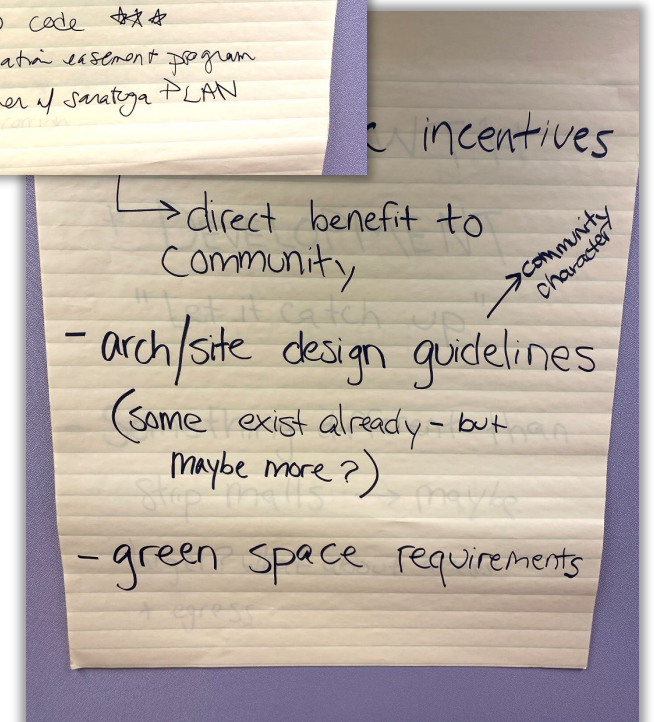 code ☆☆☆
easement program
w/ saratoga PLAN
incentives
→ direct benefit to
community
→ community
character
- arch/site design guidelines
(some exist already - but
maybe more?)
- green space requirements
"Let it catch up"
than
strip malls → maybe
egress